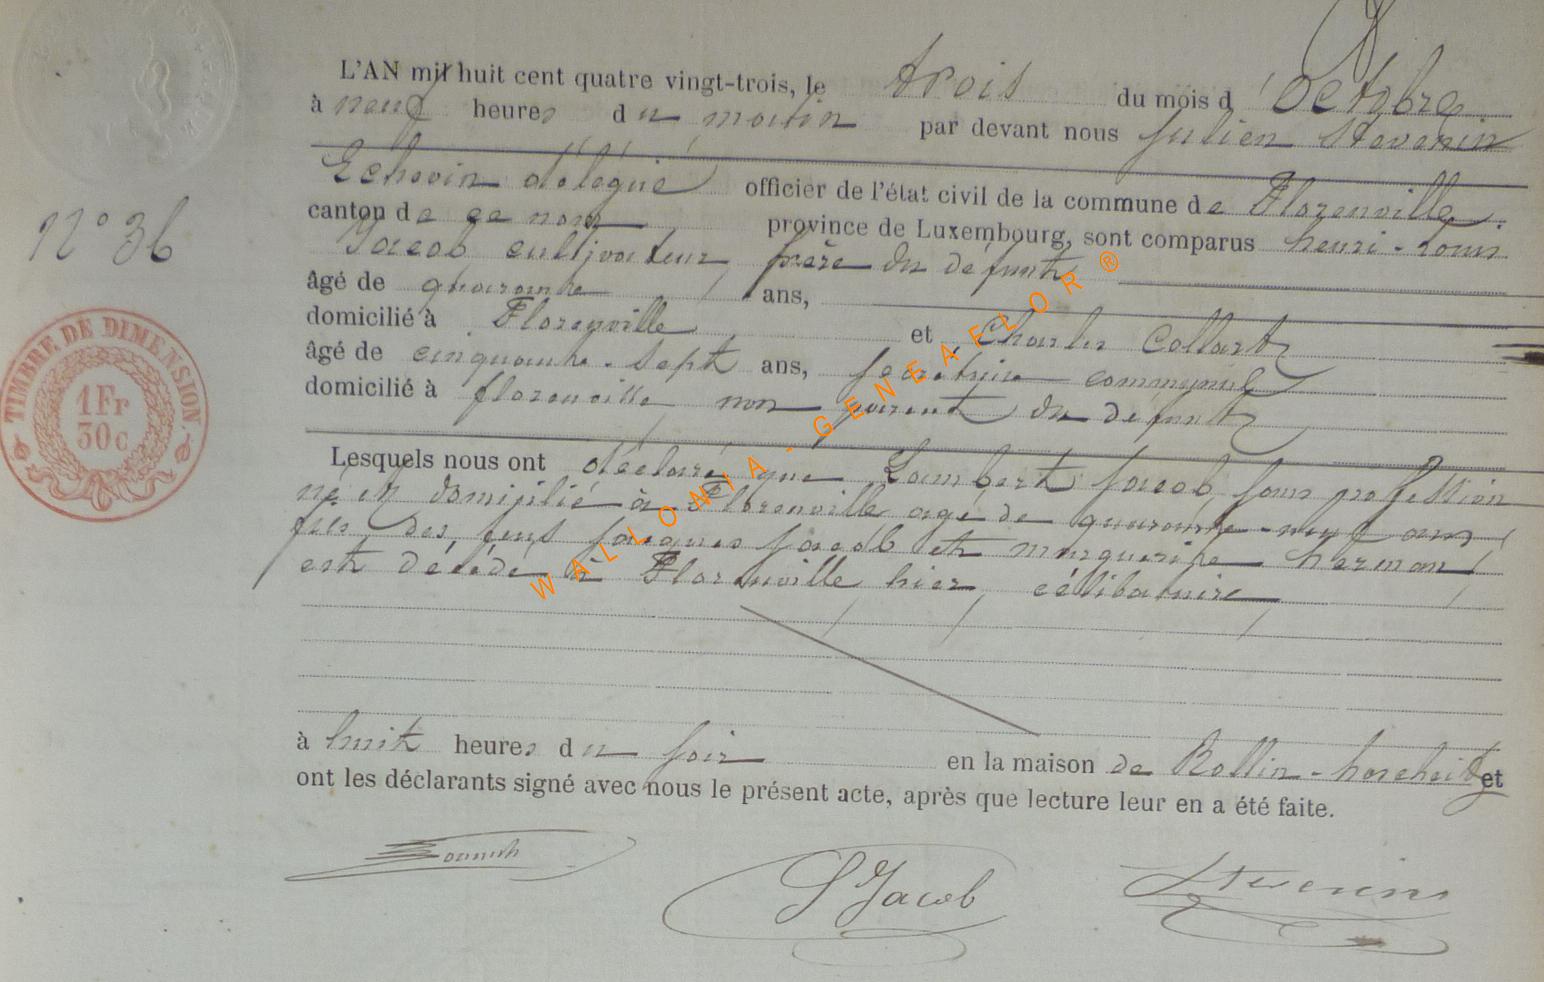 L'AN mil huit cent quatre vingt-trois, le trois du mois d'Octobre
à neuf heures du matin par devant nous Julien Stevenin
Echevin délégué officier de l'état civil de la commune de Florenville
canton de ce nom province de Luxembourg, sont comparus henri-Louis
Jacob cultivateur, frère du défunt
âgé de quarante ans,
domicilié à Florenville et Charles Collart
âgé de cinquante-sept ans, secrétaire communal
domicilié à florenville, non parent du défunt
Lesquels nous ont déclaré que Lambert Jacob, sans profession
né et domicilié à Florenville âgé de quarante-neuf ans,
fils des feus Jacques Jacob et marguerite herman,
est décédé à Florenville hier, célibataire,
à huit heures du soir en la maison de Rollin-horcheid et
ont les déclarants signé avec nous le présent acte, après que lecture leur en a été faite.
Jacob Stevenin
N° 36
TIMBRE DE DIMENSION
1 Fr
30 c
WALLONIA-GENEAFLOR ®